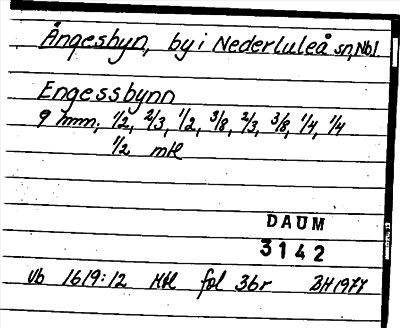 Ängesbyn, by i Nederluleå sn, Nbl
Engessbynn
9 hmn; 1/2, 2/3, 1/2, 3/8, 2/3, 3/8, 1/4, 1/4
1/2 mtl
DAUM
3142
Vb 1619:12 Mtl fol 36r BH 1977